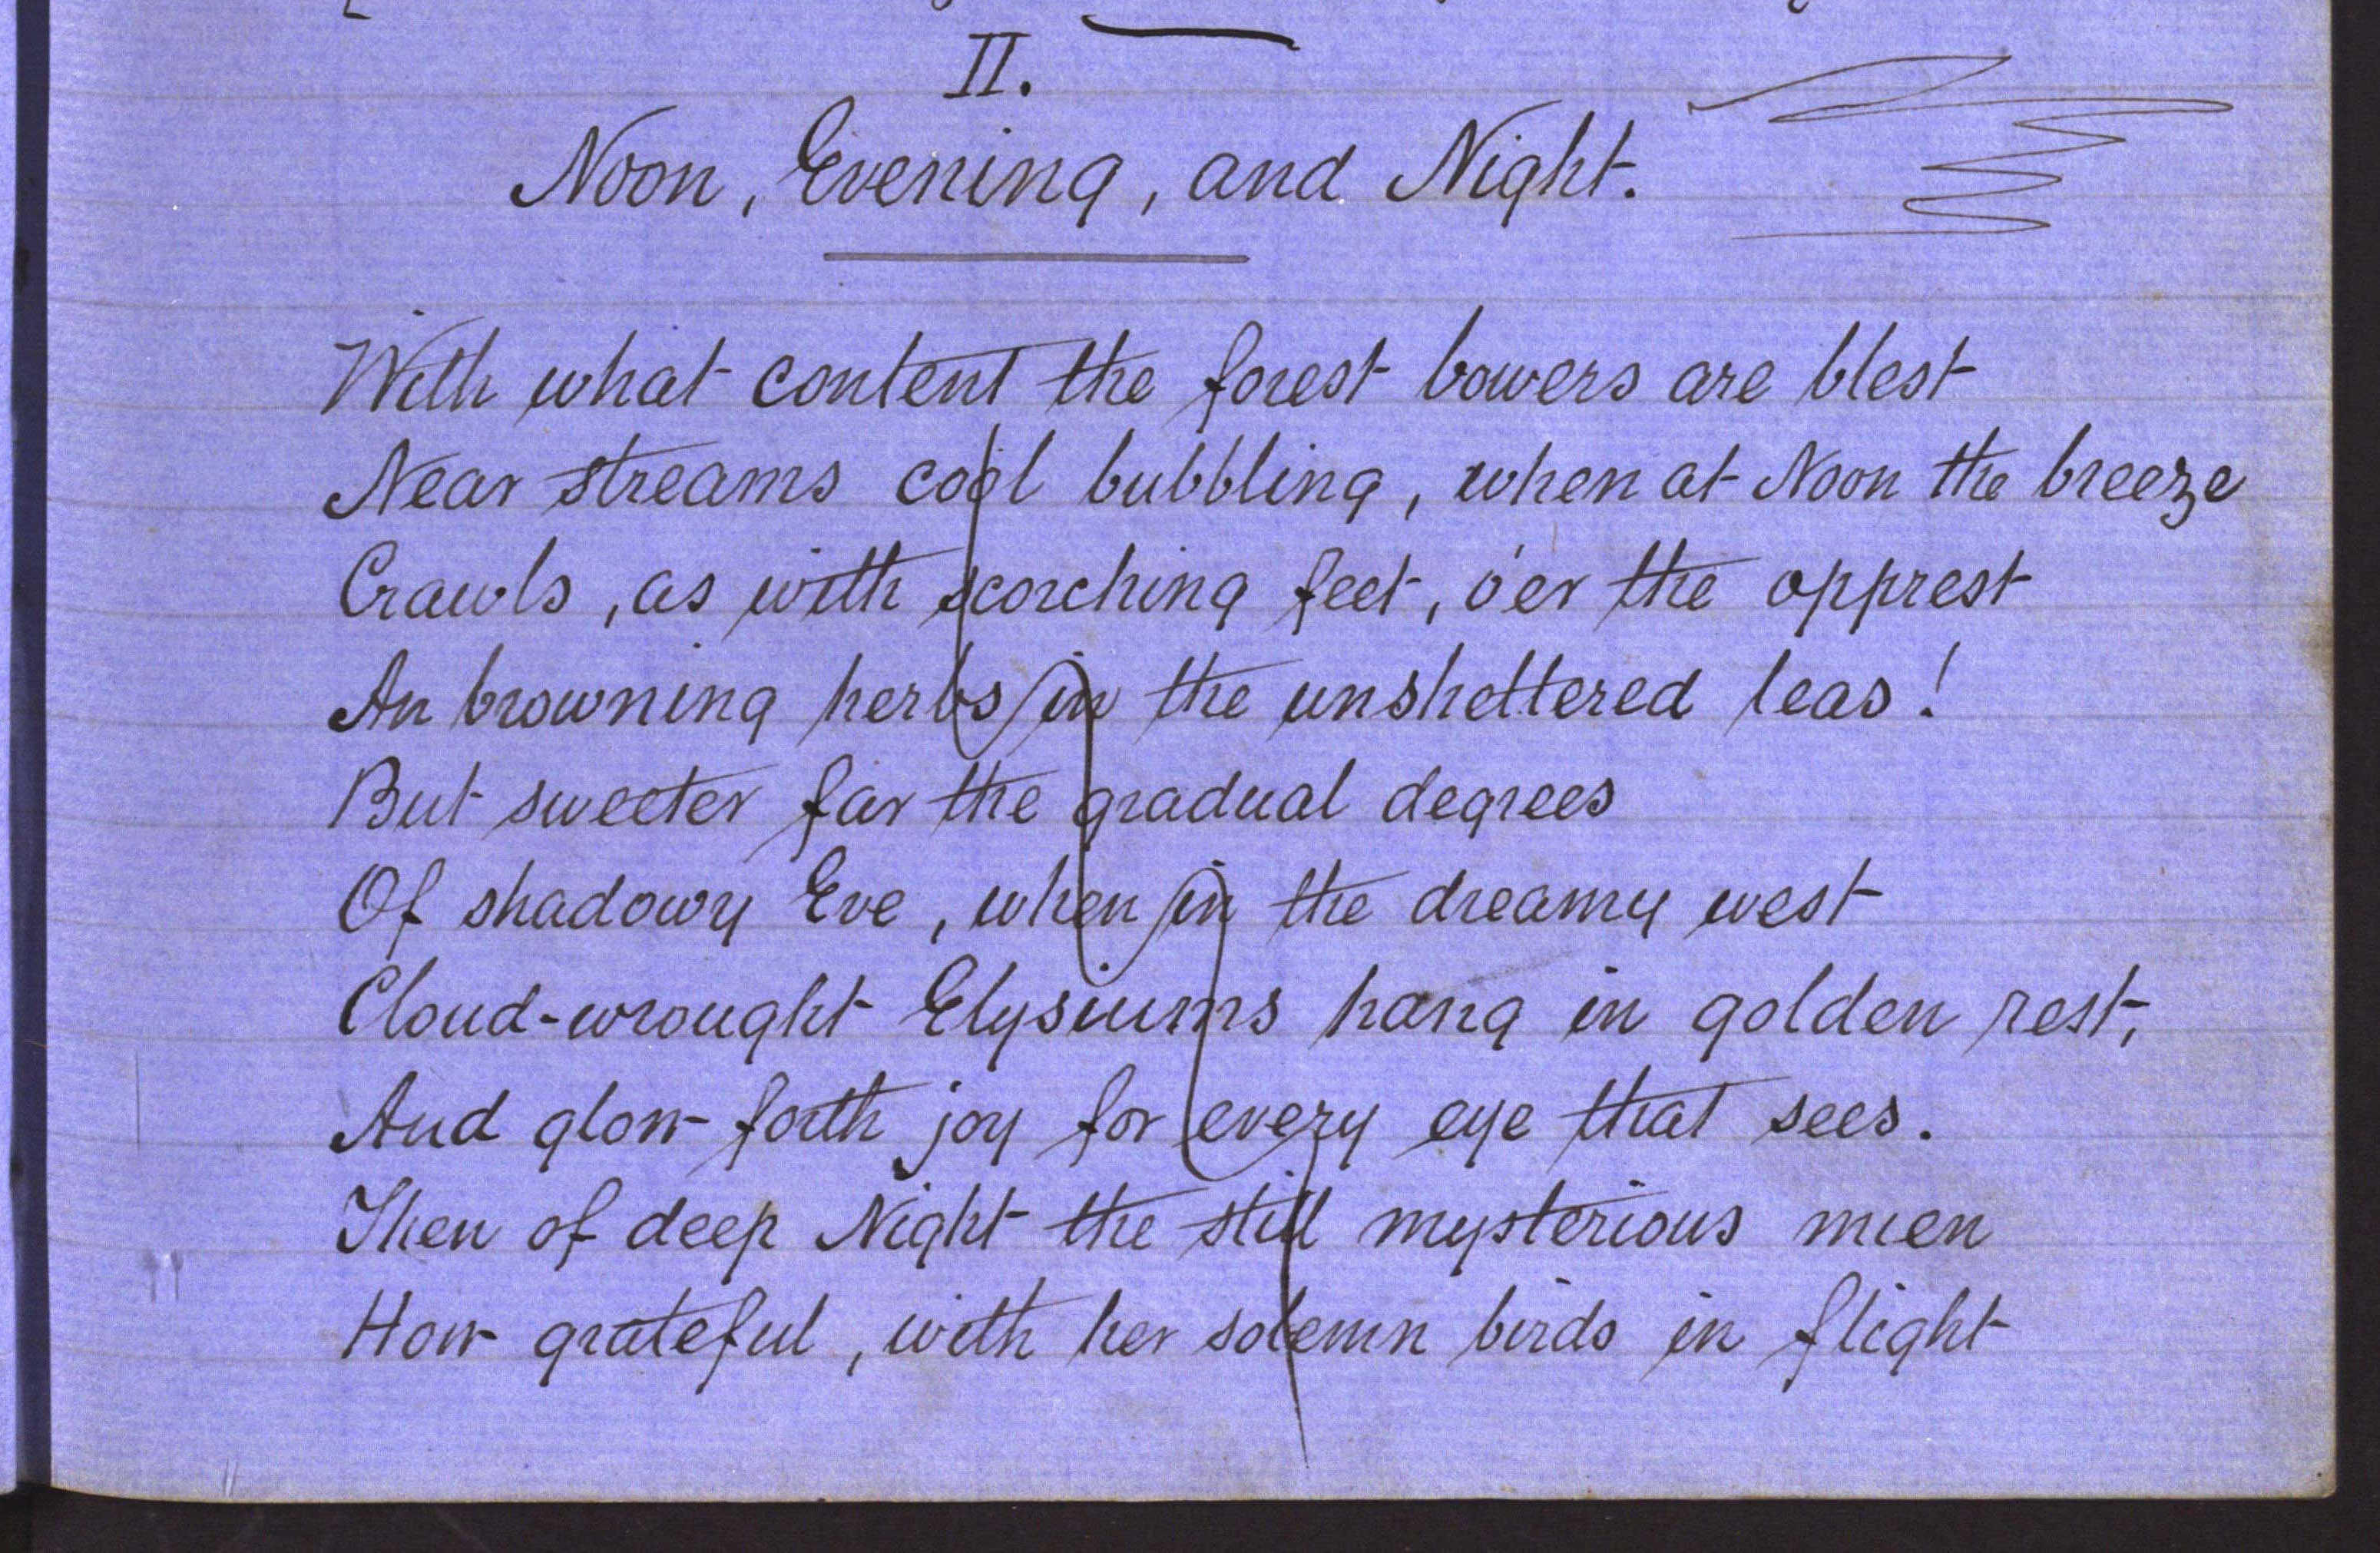 II.
Noon, Evening, and Night.
With what content the forest bowers are blest
Near streams cool bubbling, when at Noon the breeze
Crawls, as with scorching feet, o'er the opprest
An browning herbs in the unsheltered leas!
But sweeter far the gradual degrees
Of shadowy Eve, when in the dreamy west
Cloud-wrought Elysiums hang in golden rest,
And glow forth joy for every eye that sees.
Then of deep Night the still mysterious mien
How grateful, with her solemn birds in flight